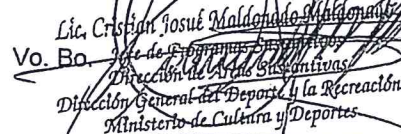 Lic. Cristian Josué Maldonado Maldonado
Vo. Bo. Jefe de Programas Sustantivos
Dirección de Áreas Sustantivas
Dirección General del Deporte y la Recreación
Ministerio de Cultura y Deportes